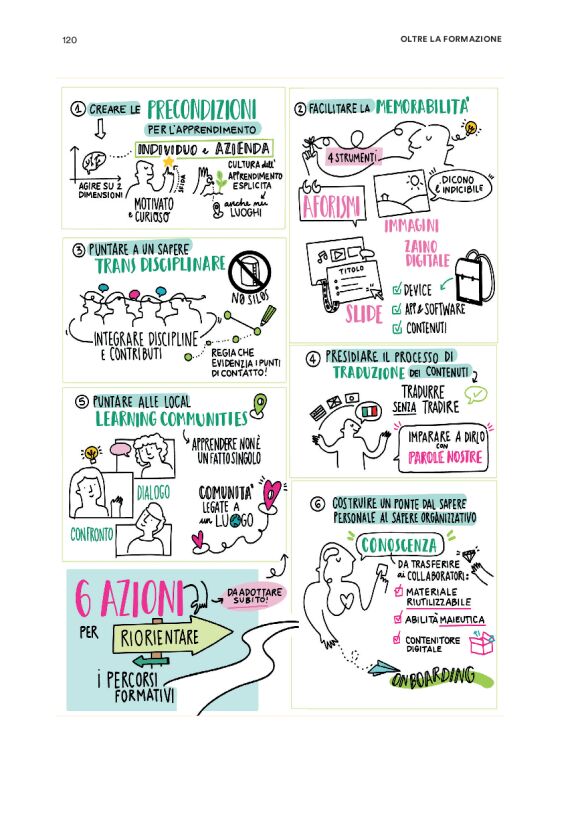 120
OLTRE LA FORMAZIONE
1 CREARE LE PRECONDIZIONI
PER L'APPRENDIMENTO
INDIVIDUO e AZIENDA
AGIRE SU 2
DIMENSIONI
MOTIVATO
e CURIOSO
SFIDA
CULTURA dell'
APPRENDIMENTO
ESPLICITA
anche nei
LUOGHI
2 FACILITARE LA MEMORABILITA'
4 STRUMENTI
AFORISMI
DICONO
l'INDICIBILE
IMMAGINI
ZAINO
DIGITALE
TITOLO
SLIDE
DEVICE
APP e SOFTWARE
CONTENUTI
3 PUNTARE A UN SAPERE
TRANS DISCIPLINARE
NO SILOS
INTEGRARE DISCIPLINE
E CONTRIBUTI
REGIA CHE
EVIDENZIA I PUNTI
DI CONTATTO!
4 PRESIDIARE IL PROCESSO DI
TRADUZIONE DEI CONTENUTI
TRADURRE
SENZA TRADIRE
IMPARARE A DIRLO
CON
PAROLE NOSTRE
5 PUNTARE ALLE LOCAL
LEARNING COMMUNITIES
APPRENDERE NON È
UN FATTO SINGOLO
DIALOGO
CONFRONTO
COMUNITA'
LEGATE A
un LUOGO
6 COSTRUIRE UN PONTE DAL SAPERE
PERSONALE AL SAPERE ORGANIZZATIVO
CONOSCENZA
DA TRASFERIRE
ai COLLABORATORI:
MATERIALE
RIUTILIZZABILE
ABILITÀ MAIEUTICA
CONTENITORE
DIGITALE
ONBOARDING
6 AZIONI
DA ADOTTARE
SUBITO!
PER
RIORIENTARE
I PERCORSI
FORMATIVI